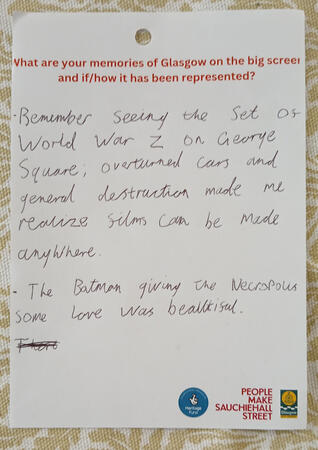 What are your memories of Glasgow on the big screen
and if/how it has been represented?
- Remember seeing the set of
World War Z on George
Square; overturned cars and
general destruction made me
realize films can be made
anywhere.
- The Batman giving the Necropolis
some love was beautiful.
Heritage
Fund
PEOPLE
MAKE
SAUCHIEHALL
STREET